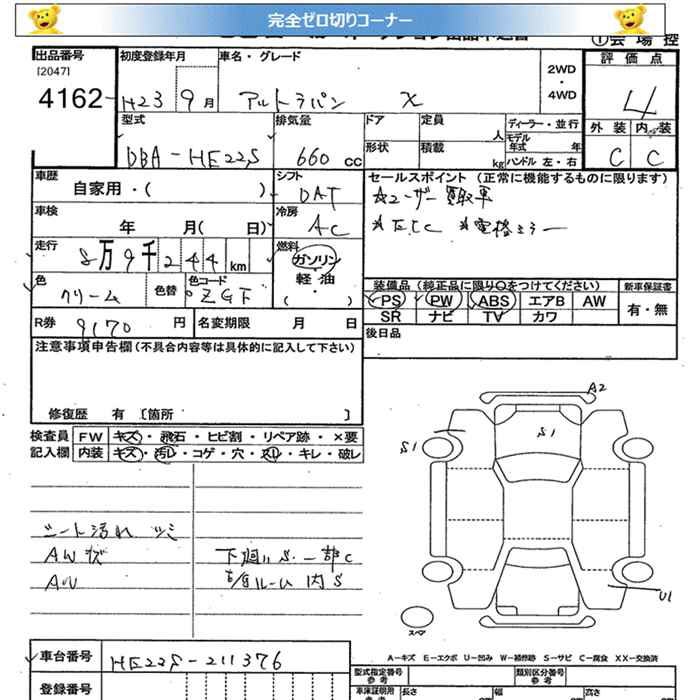 完全ゼロ切りコーナー
①会場控
出品番号 初度登録年月 車名・グレード 2WD・4WD 評価点
[2047]
4162 H23 9月 アルトラパン X 4
型式 排気量 ドア 定員 人 ディーラー・並行 外装 内装
DBA-HE22S 660cc 形状 積載 kg モデル年式 年 ハンドル 左・右 C C
車歴 シフト セールスポイント (正常に機能するものに限ります)
自家用・( ) DAT ☆ユーザー買取車
車検 冷房 ＊ETC ＊電格ミラー
年 月( 日) AC
走行 燃料
8万9千244km ガソリン
軽油
・
( )
色 色替 色コード 装備品 (純正品に限り○をつけてください) 新車保証書
クリーム ZGF PS PW ABS エアB AW 有・無
SR ナビ TV カワ
R券 9170円 名変期限 月 日 後日品
注意事項申告欄(不具合内容等は具体的に記入して下さい)
修復歴 有 [箇所 ]
検査員 FW キズ・飛石・ヒビ割・リペア跡・×要
記入欄 内装 キズ・汚レ・コゲ・穴・スレ・キレ・破レ
シート汚れ シミ
AWキズ 下廻りS 一部C
内S
A2
S1
S1
U1
スペア
A-キズ E-エクボ U-凹み W-補修跡 S-サビ C-腐食 XX-交換済
車台番号 HE22S-211376
型式指定番号 参考 類別区分番号 参考
登録番号 車庫証明用 参考 長さ 幅 高さ